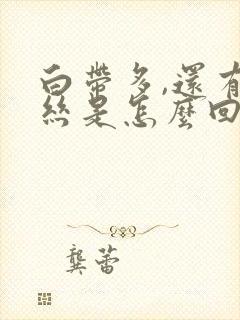 白帶多,還有
絲是怎麼回
龔蕾